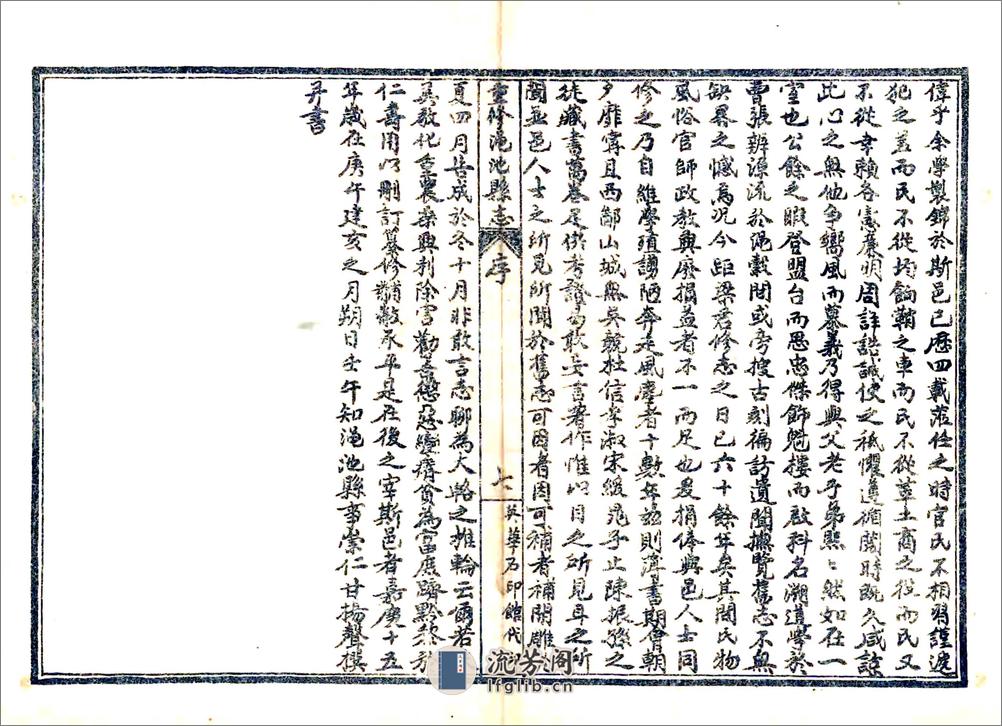 偉乎余學製錦於斯邑已歷四載蒞任之時官民不相習謹逆
犯之蓋而民不從均餉鞘之車而民不從革土商之役而民又
不從幸賴各憲廉明周詳誥誡使之祗懼遵循閱時既久咸諒
此心之無他爭嚮風而慕義乃得與父老子弟熙熙然如在一
室也公餘之暇登盟台而思忠傑飾魁樓而啟科名溯道學於
曹張辨源流於澠穀間或旁搜古刻徧訪遺聞攟覽舊志不無
缺畧之憾焉况今距梁君修志之日已六十餘年矣其間民物
風俗官師政教興廢損益者不一而足也爰捐俸與邑人士同
修之乃自維學殖譾陋奔走風塵者十數年茲則簿書期會朝
夕靡寧且西鄙山城無吳兢杜信李淑宋綬晁子止陳振孫之
徒藏書萬卷足供考證曷敢妄言著作惟以目之所見耳之所
聞並邑人士之所見所聞於舊志可因者因可補者補開雕
重修澠池縣志 序 七 英華石印館代
夏四月告成於冬十月非敢言志聊為大輅之椎輪云爾若
夫敦化重農桑興利除害勸善懲惡變瘠貧為富庶躋黔黎於
仁壽用以刪訂纂修黼黻承平是在後之宰斯邑者嘉慶十五
年歲在庚午建亥之月朔日壬午知澠池縣事崇仁甘揚聲撰
并書
流芳閣
lfglib.cn